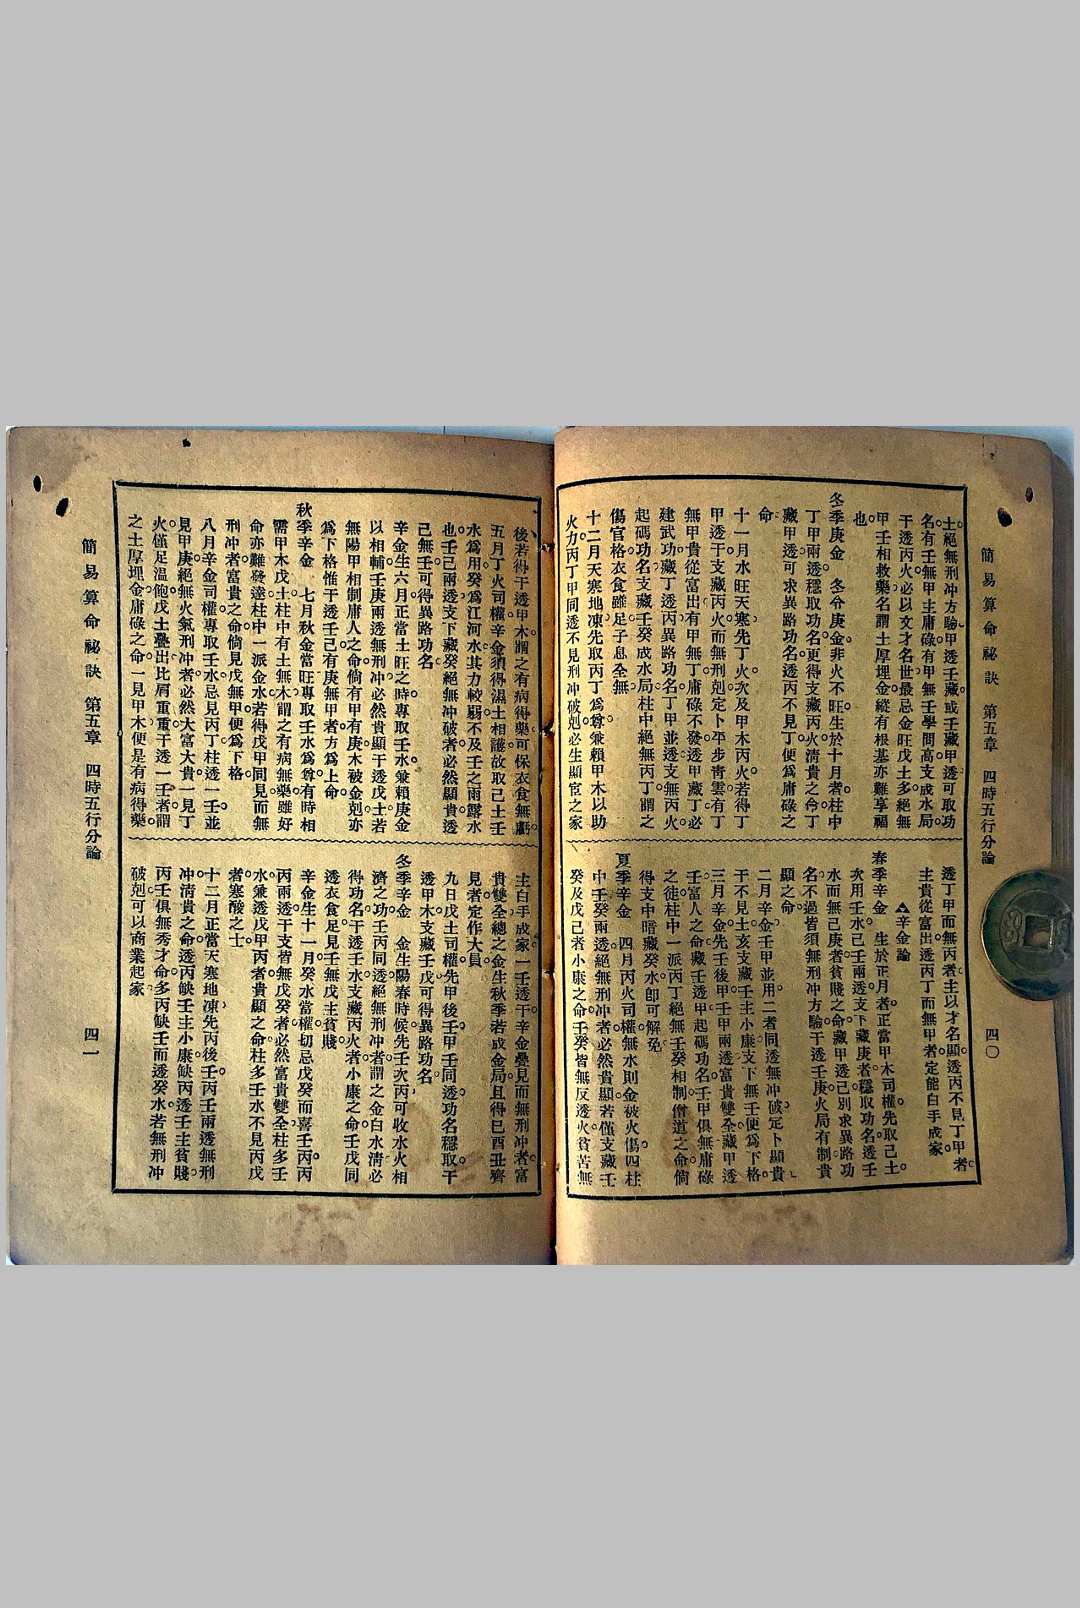 簡易算命祕訣 第五章 四時五行分論 四〇
士絕無刑冲方驗甲透壬藏或壬藏甲透可取功
名有壬無甲主庸碌有甲無壬學問高支成水局
干透丙火必以文才名世最忌金旺戊土多絕無
甲壬相救藥名謂土厚埋金縱有根基亦難享福
也
冬季庚金 冬令庚金非火不旺生於十月者柱中
丁甲兩透穩取功名更得支藏丙火清貴之命丁
藏甲透可求異路功名透丙不見丁便爲庸碌之
命
十一月水旺天寒先丁火次及甲木丙火若得丁
甲透干支藏丙火而無刑剋定卜平步青雲有丁
無甲貴從富出有甲無丁庸碌不發透甲藏丁必
建武功藏丁透丙異路功名丁甲並透支無丙火
起碼功名支藏壬癸成水局柱中絕無丙丁謂之
傷官格衣食雖足子息全無
十二月天寒地凍先取丙丁爲尊兼賴甲木以助
火力丙丁甲同透不見刑冲破剋必生顯宦之家
透丁甲而無丙者主以才名顯透丙不見丁甲者
主貴從富出透丙丁而無甲者定能白手成家
▲辛金論
春季辛金 生於正月者正當甲木司權先取己土
次用壬水己壬兩透支下藏庚者穩取功名透壬
水而無己庚者貧賤之命藏甲透己別求異路功
名不過皆須無刑冲方驗干透壬庚火局有制貴
顯之命
二月辛金壬甲並用二者同透無冲破定卜顯貴
干不見土亥支藏壬主小康支下無壬便爲下格
三月辛金先壬後甲壬甲兩透富貴雙全藏甲透
壬富人之命藏壬透甲起碼功名壬甲俱無庸碌
之徒柱中一派丙丁絕無壬癸相制僧道之命倘
得支中暗藏癸水卽可解免
夏季辛金 四月丙火司權無水則金被火傷四柱
中壬癸兩透絕無刑冲者必然貴顯若僅支藏壬
癸及戊己者小康之命壬癸皆無反透火貧苦無
後若得干透甲木謂之有病得藥可保衣食無虧
五月丁火司權辛金須得濕土相護故取己土壬
水爲用癸爲江河水其力較弱不及壬之雨露水
也壬己兩透支下藏癸絕無冲破者必然顯貴透
己無壬可得異路功名
辛金生六月正當土旺之時專取壬水兼賴庚金
以相輔壬庚兩透無刑冲必然貴顯干透戊土若
無陽甲相制庸人之命倘有甲有庚木被金剋亦
爲下格惟干透壬己有庚無甲者方爲上命
秋季辛金 七月秋金當旺專取壬水爲尊有時相
需甲木戊土柱中有土無木謂之有病無藥雖好
命亦難發達柱中一派金水若得戊甲間見而無
刑冲者富貴之命倘見戊無甲便爲下格
八月辛金司權專取壬水忌見丙丁柱透一壬並
見甲庚絕無火氣刑冲者必然大富大貴一見丁
火僅足温飽戊土疊出比肩重重干透一壬者謂
之土厚埋金庸碌之命一見甲木便是有病得藥
主白手成家一壬透干辛金疊見而無刑冲者富
貴雙全總之金生秋季若成金局且得巳酉丑齊
見者定作大員
九月戊土司權先甲後壬甲壬同透功名穩取干
透甲木支藏壬戊可得異路功名
冬季辛金 金生陽春時候先壬次丙可收水火相
濟之功壬丙同透絕無刑冲者謂之金白水清必
得功名干透壬水支藏丙火者小康之命壬戊同
透衣食足見壬無戊主貧賤
辛金生十一月癸水當權切忌戊癸而喜壬丙丙
丙兩透干支皆無戊癸者必然富貴雙全柱多壬
水兼透戊甲丙者貴顯之命柱多壬水不見丙戊
者寒酸之士
十二月正當天寒地凍先丙後壬丙壬兩透無刑
冲清貴之命透丙缺壬主小康缺丙透壬主貧賤
丙壬俱無秀才命多丙缺壬而透癸水若無刑冲
破剋可以商業起家
簡易算命祕訣 第五章 四時五行分論 四一